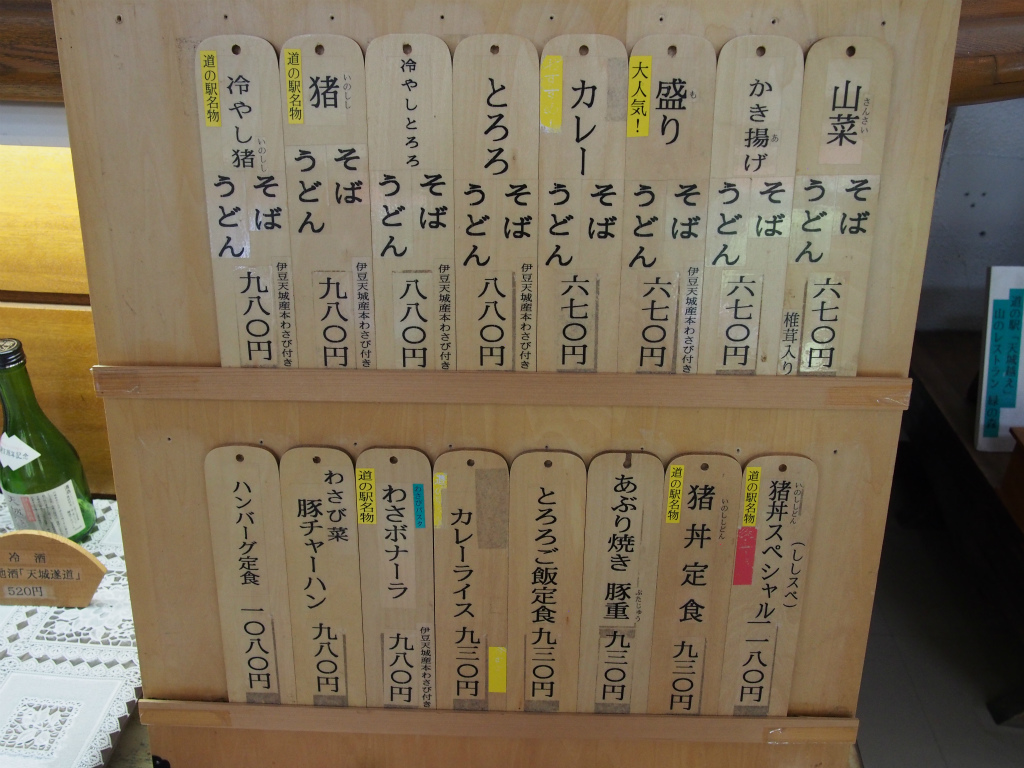 山菜
さんさい
そば
うどん
椎茸入り
六七〇円
かき揚げ
あ
そば
うどん
六七〇円
大人気!
盛り
も
そば
うどん
伊豆天城産本わさび付き
六七〇円
カレー
そば
うどん
六七〇円
とろろ
そば
うどん
伊豆天城産本わさび付き
八八〇円
冷やしとろろ
そば
うどん
伊豆天城産本わさび付き
八八〇円
道の駅名物
猪
いのしし
そば
うどん
伊豆天城産本わさび付き
九八〇円
道の駅名物
冷やし猪
いのしし
そば
うどん
伊豆天城産本わさび付き
九八〇円
道の駅名物
猪丼スペシャル
いのししどん
(ししスペ)
一一八〇円
道の駅名物
猪丼定食
いのししどん
九三〇円
あぶり焼き 豚重
ぶたじゅう
九三〇円
とろろご飯定食
九三〇円
カレーライス
九三〇円
道の駅名物
わさボナーラ
伊豆天城産本わさび付き
九八〇円
わさび菜
豚チャーハン
九八〇円
ハンバーグ定食
一〇八〇円
冷酒
地酒「天城遂道」
520円
道の駅「天城越え」
山のレストラン